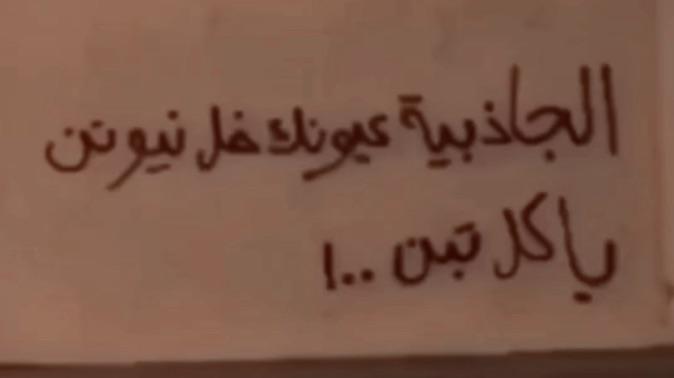 الجاذبية عيونك خل نيوتن
ياكل تبن ..!